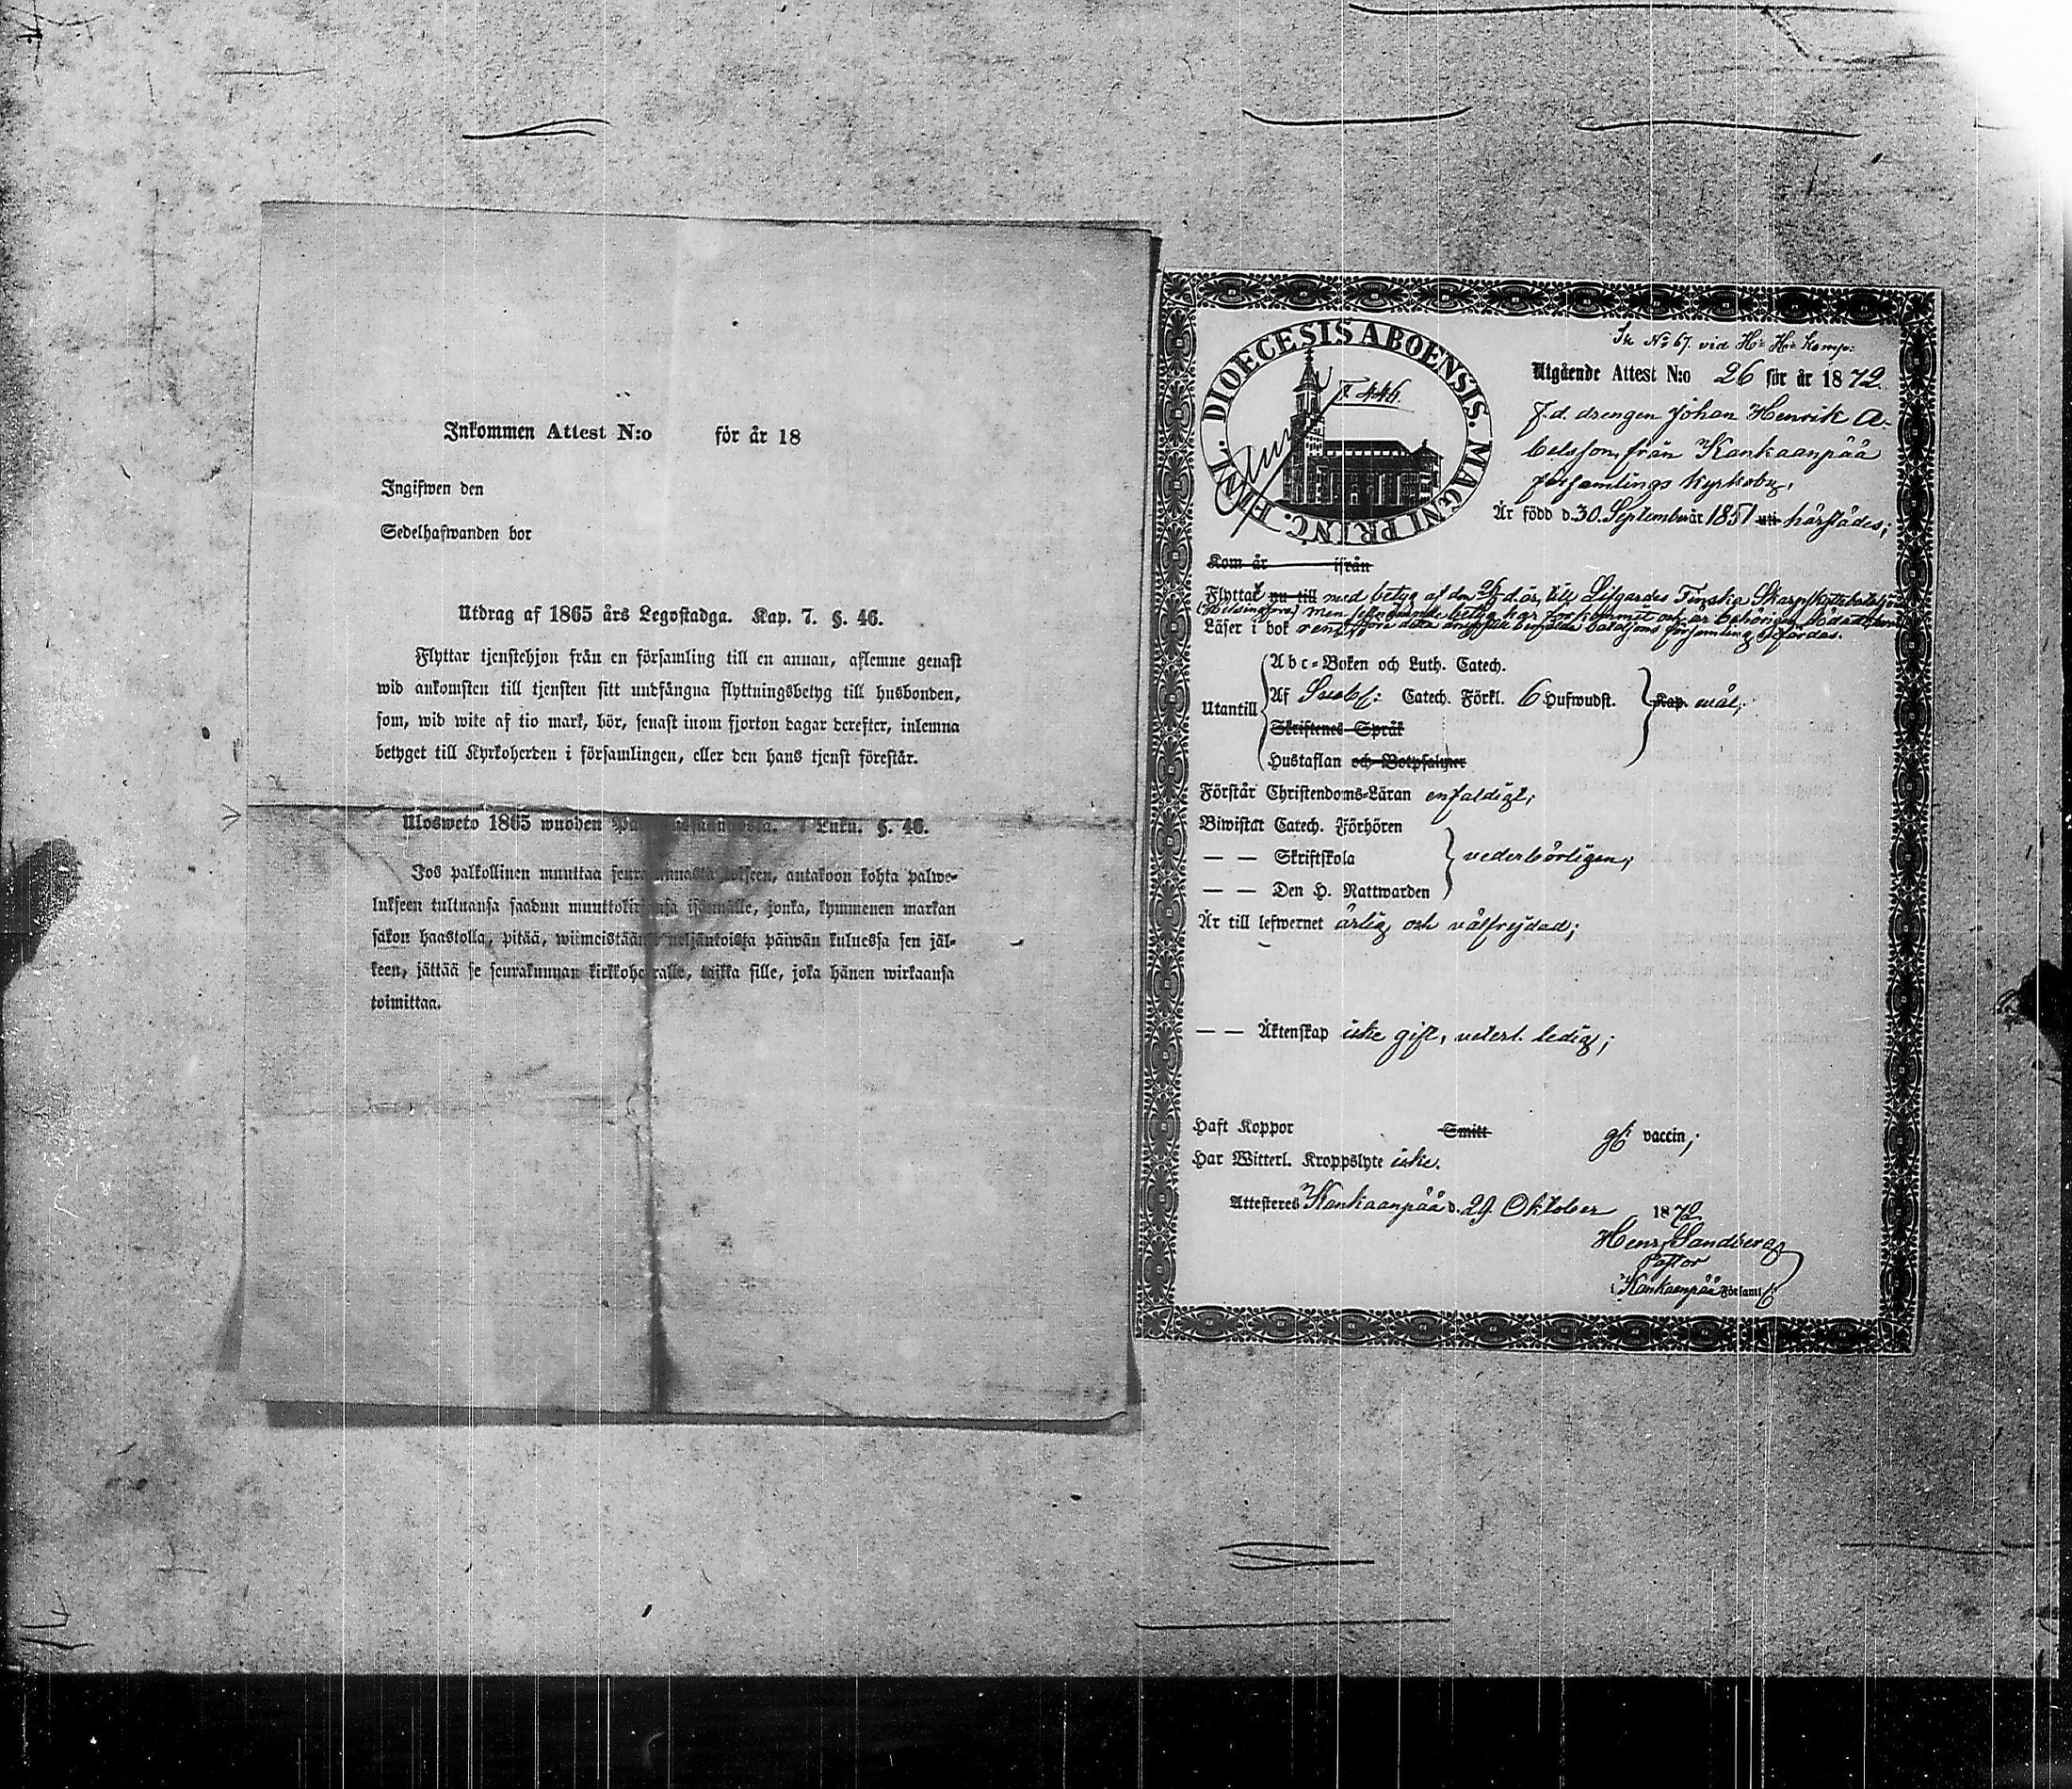 Inkommen Attest N:o för år 18
Ingifwen den
Sedelhafwanden bor
Utdrag af 1865 års Legostadga. Kap. 7. §. 46.
Flyttar tjenstehjon från en församling till en annan, aflemne genast
wid ankomsten till tjensten sitt undfångna flyttningsbetyg till husbonden,
som, wid wite af tio mark, bör, senast inom fjorton dagar derefter, inlemna
betyget till Kyrkoherden i församlingen, eller den hans tjenst förestår.
Ulosweto 1865 wuoden Luku. §. 46.
Jos palkollinen muuttaa seurakunnasta toiseen, antakoon kohta palwe-
lukseen tultuansa saadun muuttokirjansa isännälle, jonka, kymmenen markan
sakon haastolla, pitää, wiimeistään neljäntoista päiwän kuluessa sen jäl-
keen, jättää se seurakunnan kirkkoherralle, taikka sille, joka hänen wirkaansa
toimittaa.
DIOECESIS ABOENSIS. MAGNI PRINC. FINL.
F. 446.
In No 67. vid H: H: komp:
Utgående Attest N:o 26 för år 1872.
F.d. drengen Johan Henrik A-
belsson, från Kankaanpää
församlings kyrkoby,
Är född d. 30. September år 1851 uti härstädes;
Kom år ifrån
Flyttat nu till med betyg af den d. år, till Lifgardes Finska Skarpskyttebataljon
(Helsingfors) men
Läser i bok rent
Abc-Boken och Luth. Catech.
Utantill Af Svebil: Catech. Förkl. 6 Hufwudst. Kap. mål;
Skriftenes Språk
Hustaflan och Botpsalmer
Förstår Christendoms-Läran enfaldigt;
Biwistat Catech. Förhören
— — Skriftskola vederbörligen;
— — Den H. Nattwarden
Är till lefwernet ärlig och välfrejdad;
— — Äktenskap icke gift, veterl. ledig;
Haft Koppor Smitt gl: vaccin;
Har Witterl. Kroppslyte icke.
Attesteres Kankaanpää d. 29 Oktober 1872
Henr. Sandberg
Pastor
i Kankaanpää Församl: